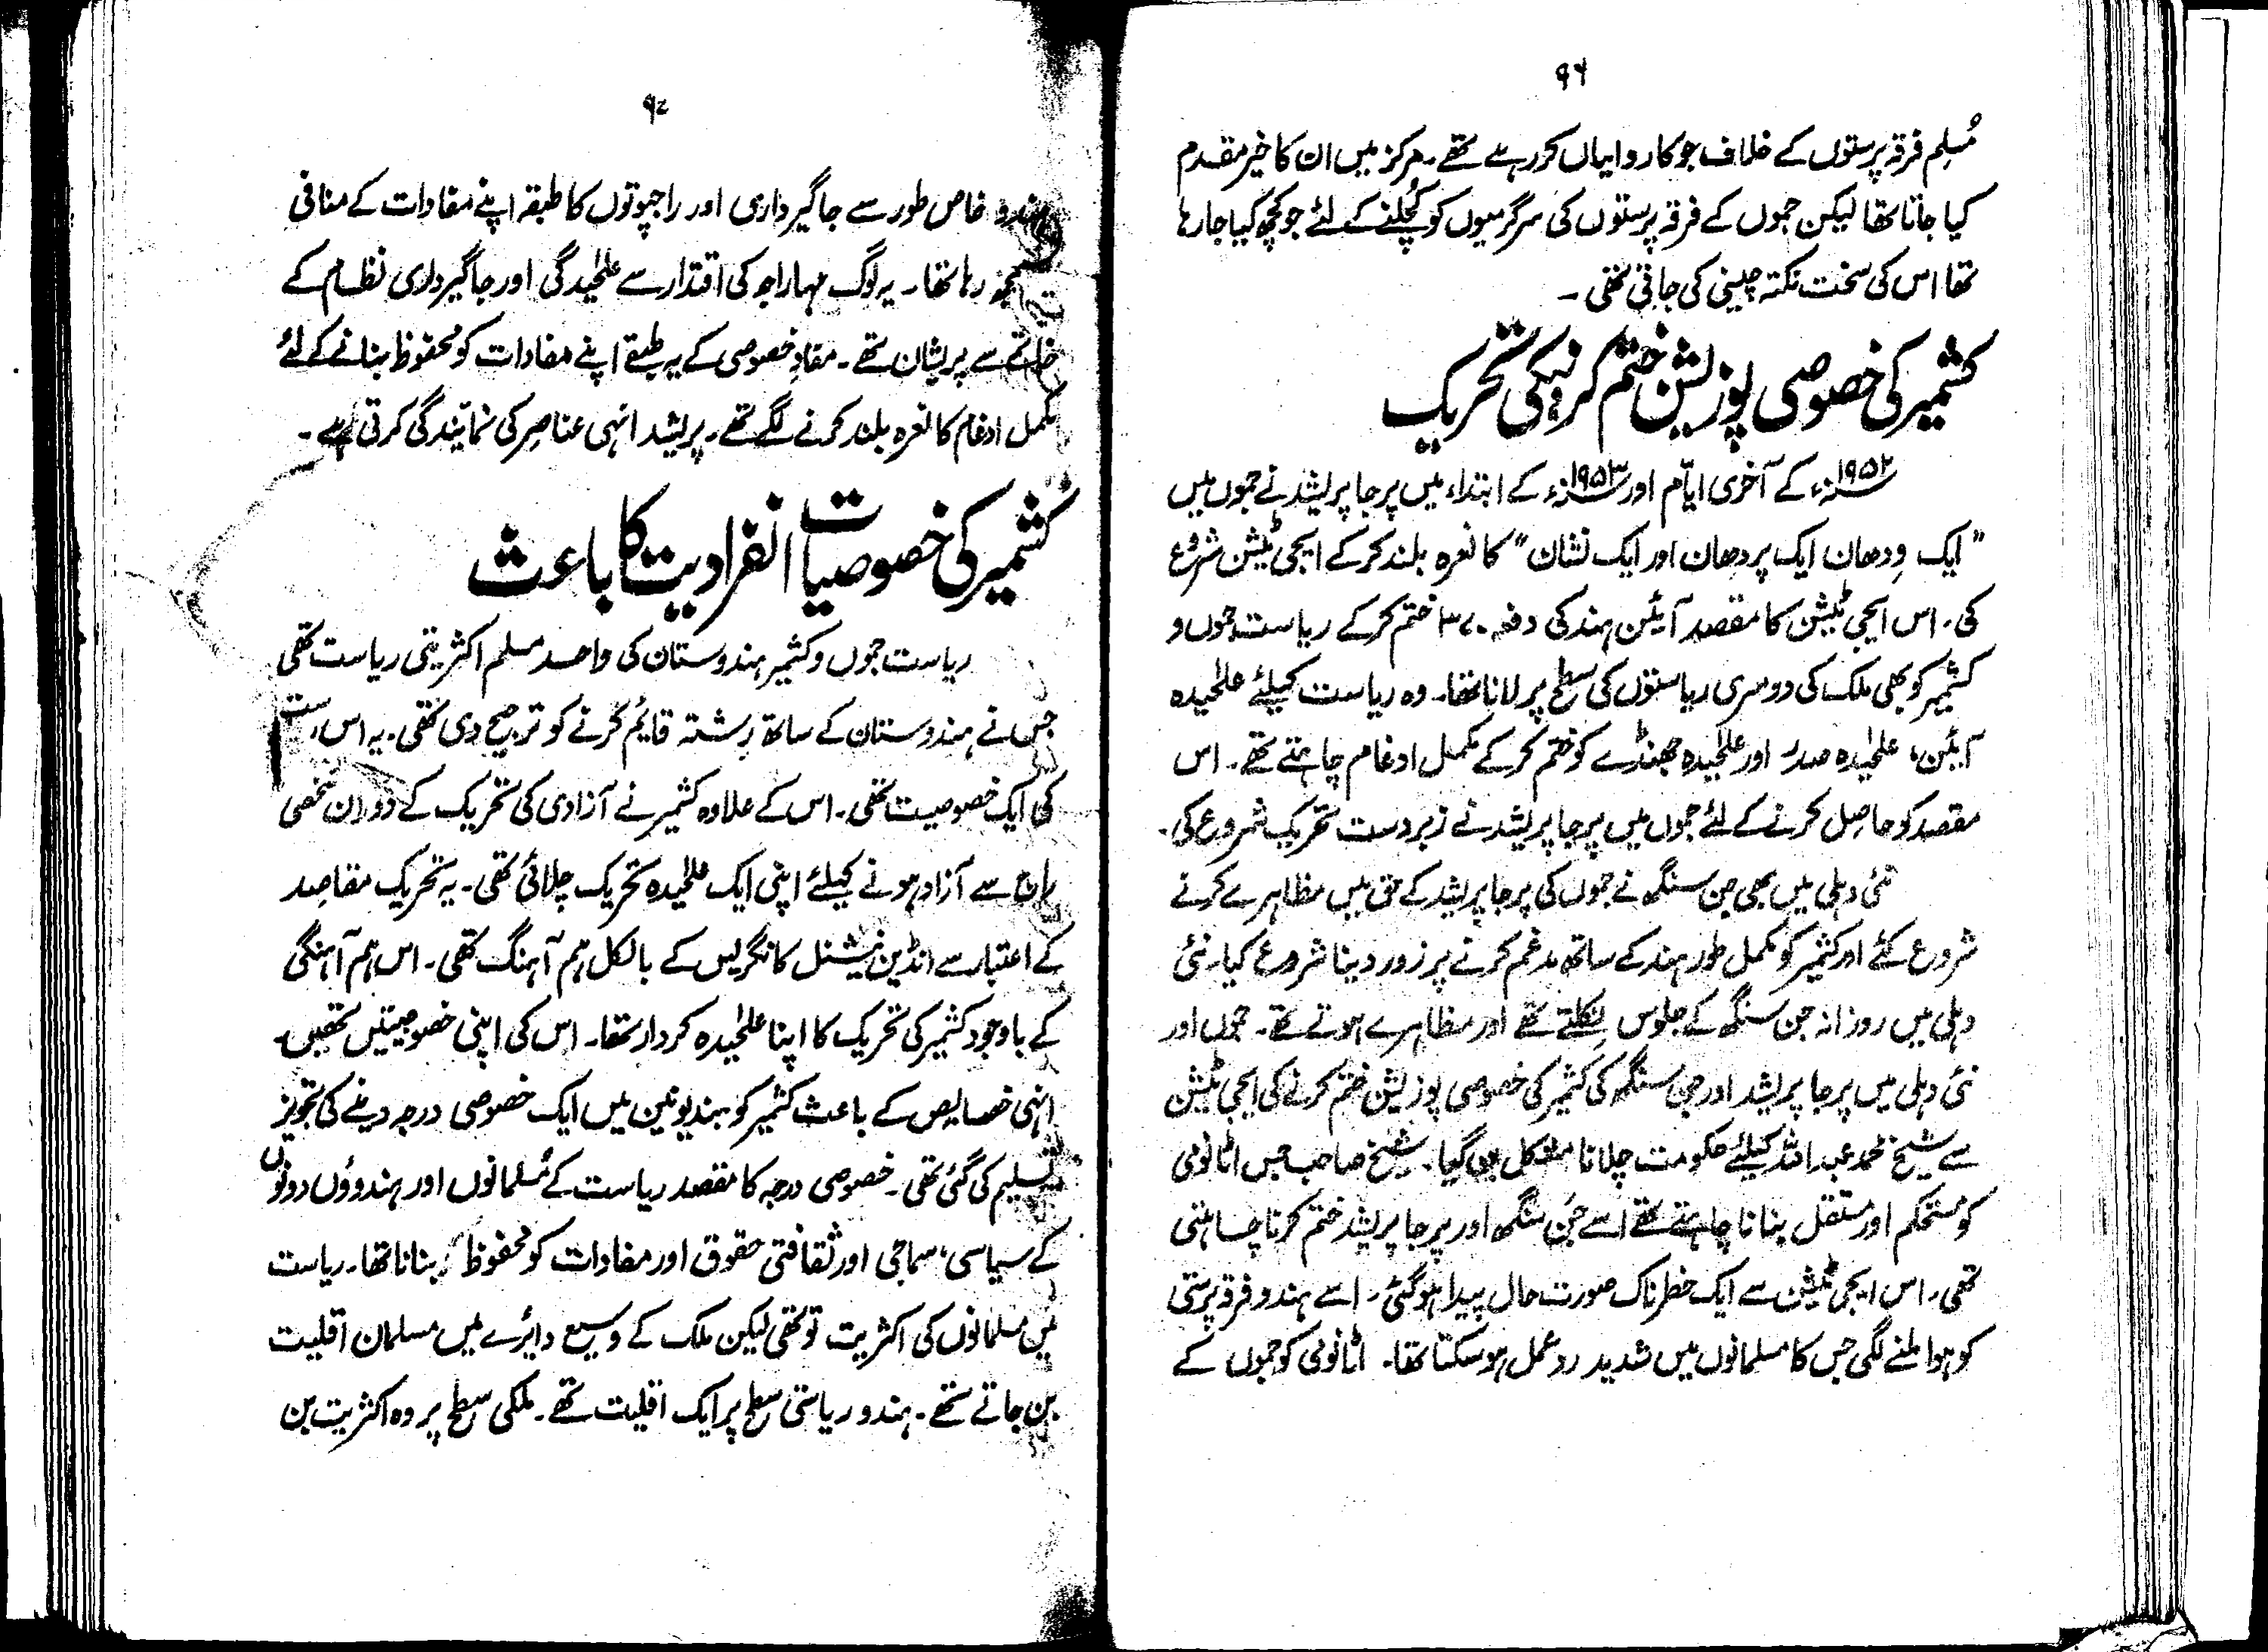 ۹۶
مُسلِم فرقہ پرستوں کے خلاف جو کاروایاں کر رہے تھے۔ مرکز میں ان کا خیر مقدم
کیا جاتا تھا لیکن جموں کے فرقہ پرستوں کی سرگرمیوں کو کُچلنے کے لئے جو کچھ کیا جا رہا
تھا اس کی سخت نکتہ چینی کی جاتی تھی۔
کشمیر کی خصوصی پوزیشن ختم کرنیکی تحریک
۱۹۵۲ء کے آخری ایّام اور ۱۹۵۳ء کے ابتداء میں پرجا پریشد نے جموں میں
"ایک وِدھان ایک پردھان اور ایک نشان" کا نعرہ بلند کر کے ایجی ٹیشن شروع
کی۔ اس ایجی ٹیشن کا مقصد آئین ہند کی دفعہ ۳۷۰ ختم کر کے ریاست جموں و
کشمیر کو بھی ملک کی دوسری ریاستوں کی سطح پر لانا تھا۔ وہ ریاست کیلئے علٰحیدہ
آئین، علٰحیدہ صدر اور علٰحیدہ جھنڈے کو ختم کر کے مکمل ادغام چاہتے تھے۔ اس
مقصد کو حاصِل کرنے کے لئے جموں میں پرجا پریشد نے زبردست تحریک شروع کی۔
نئی دہلی میں بھی جن سنگھ نے جموں کی پرجا پریشد کے حق میں مظاہرے کرنے
شروع کئے اور کشمیر کو مکمل طور ہند کے ساتھ مدغم کرنے پر زور دینا شروع کیا۔ نئی
دہلی میں روزانہ جن سنگھ کے جلوس نِکلتے تھے اور مظاہرے ہوتے تھے۔ جموں اور
نئی دہلی میں پرجا پریشد اور جن سنگھ کی کشمیر کی خصوصی پوزیشن ختم کرنے کی ایجی ٹیشن
سے شیخ محمد عبداللہ کیلئے حکومت چلانا مشکل بن گیا۔ شیخ صاحب جس اٹانومی
کو مستحکم اور مستقل بنانا چاہتے تھے اسے جن سنگھ اور پرجا پریشد ختم کرنا چاہتی
تھی۔ اس ایجی ٹیشن سے ایک خطرناک صورت حال پیدا ہو گئی۔ اسے ہندو فرقہ پرستی
کو ہوا ملنے لگی جس کا مسلمانوں میں شدید ردعمل ہو سکتا تھا۔ اٹانومی کو جموں کے
۹۷
ہندو خاص طور سے جاگیرداری اور راجپوتوں کا طبقہ اپنے مفادات کے منافی
سمجھ رہا تھا۔ یہ لوگ مہاراجہ کی اقتدار سے علٰحیدگی اور جاگیرداری نظام کے
خاتمے سے پریشان تھے۔ مفادِ خصوصی کے یہ طبقے اپنے مفادات کو محفوظ بنانے کے لئے
مکمل ادغام کا نعرہ بلند کرنے لگے تھے۔ پریشد انہی عناصِر کی نمایندگی کرتی ہے۔
کشمیر کی خصوصیات انفرادیت کا باعث
ریاست جموں و کشمیر ہندوستان کی واحد مسلم اکثریتی ریاست تھی
جس نے ہندوستان کے ساتھ رِشتہ قایٔم کرنے کو ترجیح دی تھی۔ یہ اس ریاست
کی ایک خصوصیت تھی۔ اس کے علاوہ کشمیر نے آزادی کی تحریک کے دوران شخصی
راج سے آزاد ہونے کیلئے اپنی ایک علٰحیدہ تحریک چلائی تھی۔ یہ تحریک مقاصد
کے اعتبار سے انڈین نیشنل کانگریس کے بالکل ہم آہنگ تھی۔ اس ہم آہنگی
کے باوجود کشمیر کی تحریک کا اپنا علٰحیدہ کردار تھا۔ اس کی اپنی خصوصیتیں تھیں۔
انہی خصایص کے باعث کشمیر کو ہند یونین میں ایک خصوصی درجہ دینے کی تجویز
تسلیم کی گئی تھی۔ خصوصی درجہ کا مقصد ریاست کے مُسلمانوں اور ہندوؤں دونوں
کے سیاسی، سماجی اور ثقافتی حقوق اور مفادات کو محفوظ بنانا تھا۔ ریاست
میں مسلمانوں کی اکثریت تو تھی لیکن ملک کے وسیع دایٔرے میں مسلمان اقلیت
بن جاتے تھے۔ ہندو ریاستی سطح پر ایک اقلیت تھے۔ ملکی سطح پر وہ اکثریت بن